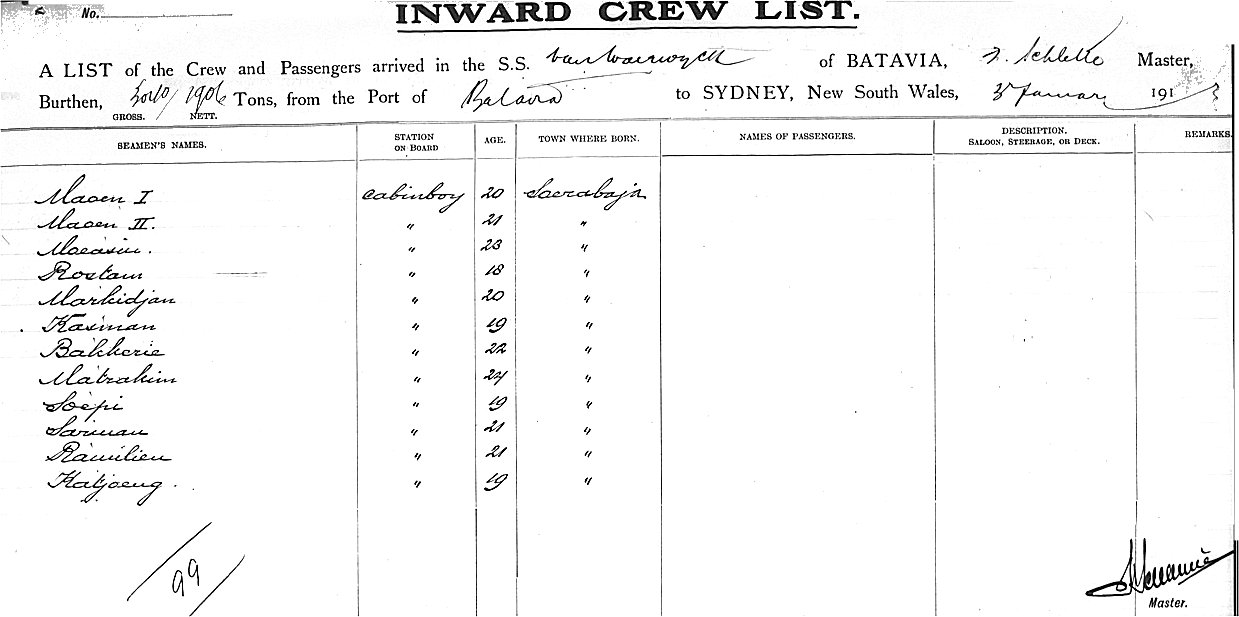 No.
INWARD CREW LIST.
A LIST of the Crew and Passengers arrived in the S.S. van Waerwyck of BATAVIA, Master,
Burthen, 1906 Tons, from the Port of Batavia to SYDNEY, New South Wales, 3 Januar 191
GROSS. NETT.
SEAMEN'S NAMES. STATION ON BOARD AGE. TOWN WHERE BORN. NAMES OF PASSENGERS. DESCRIPTION. SALOON, STEERAGE, OR DECK. REMARKS
Maoen I cabinboy 20 Soerabaja
Maoen II. " 21 "
Moeasin. " 23 "
Rostam " 18 "
Markidjan " 20 "
Kasman " 19 "
Bakkerie " 22 "
Matrakim " 24 "
Soepi " 19 "
Sariman " 21 "
Ramilien " 21 "
Katjoeng. " 19 "
99
Master.